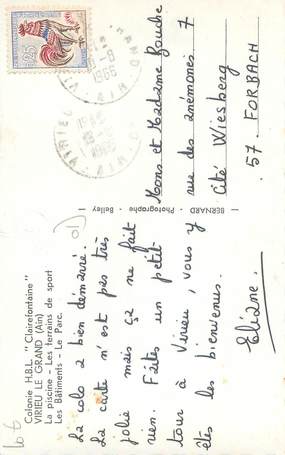 Colonie H.B.L. " Clairefontaine "
VIRIEU LE GRAND (Ain)
La piscine - Les terrains de sport
Les Bâtiments - Le Parc.
La colo a bien démarré.
La carte n'est pas très
jolie mais ça ne fait
rien. Faites un petit
tour à Virieu, vous y
êtes les bienvenues.
Eliane.
BERNARD - Photographe - Belley
Mons et Madame Bouche
rue des anémones 7
Cité Wiesberg
57 FORBACH
0,25